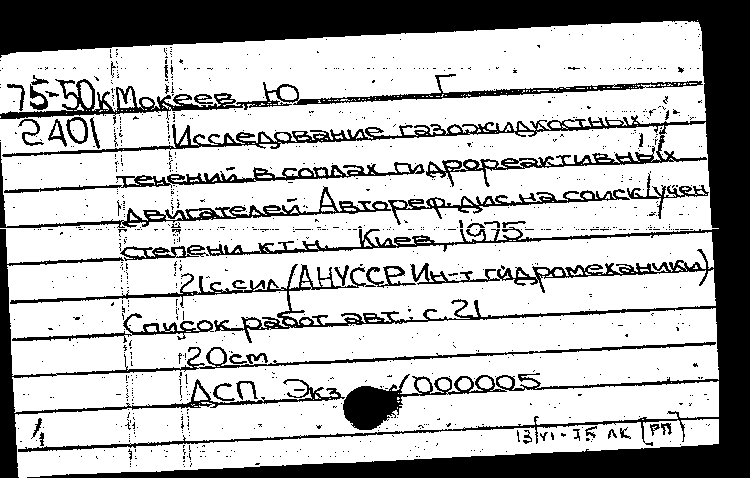 75-50к Мокеев, Ю Г
2401 Исследование газожидкостных
течений в соплах гидрореактивных
двигателей. Автореф. дис. на соиск/учен
степени к.т.н. Киев, 1975.
21с. с ил/(АНУССР. Ин-т гидромеханики)
Список работ авт.: с. 21.
20см.
ДСП. Экз /000005
13/VI-75 ЛК [РП]